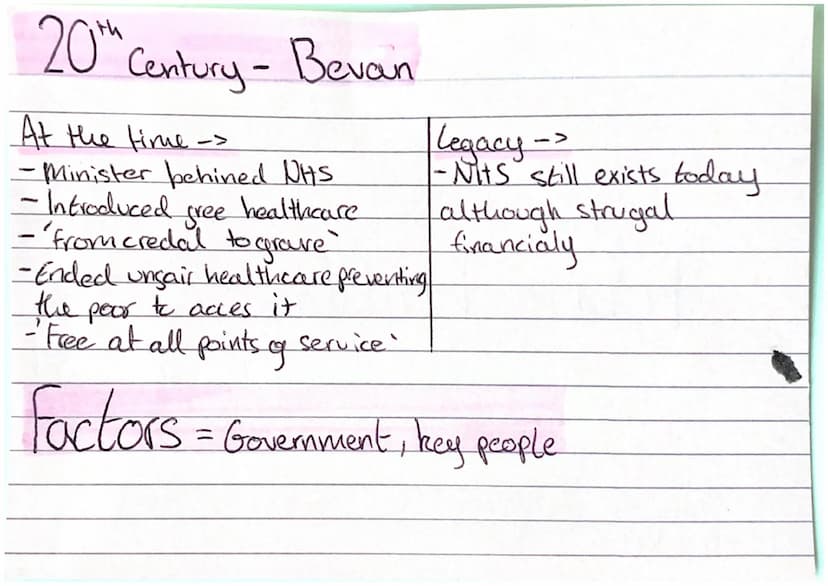 20th Century - Bevan
At the time ->
- Minister behined NHS
- Introduced free healthcare
- 'from credal to grave'
- Ended unfair healthcare preventing
the poor to acces it
- 'Free at all points of service'
Legacy ->
- NHS still exists today
although strugal
financialy
Factors = Government, key people